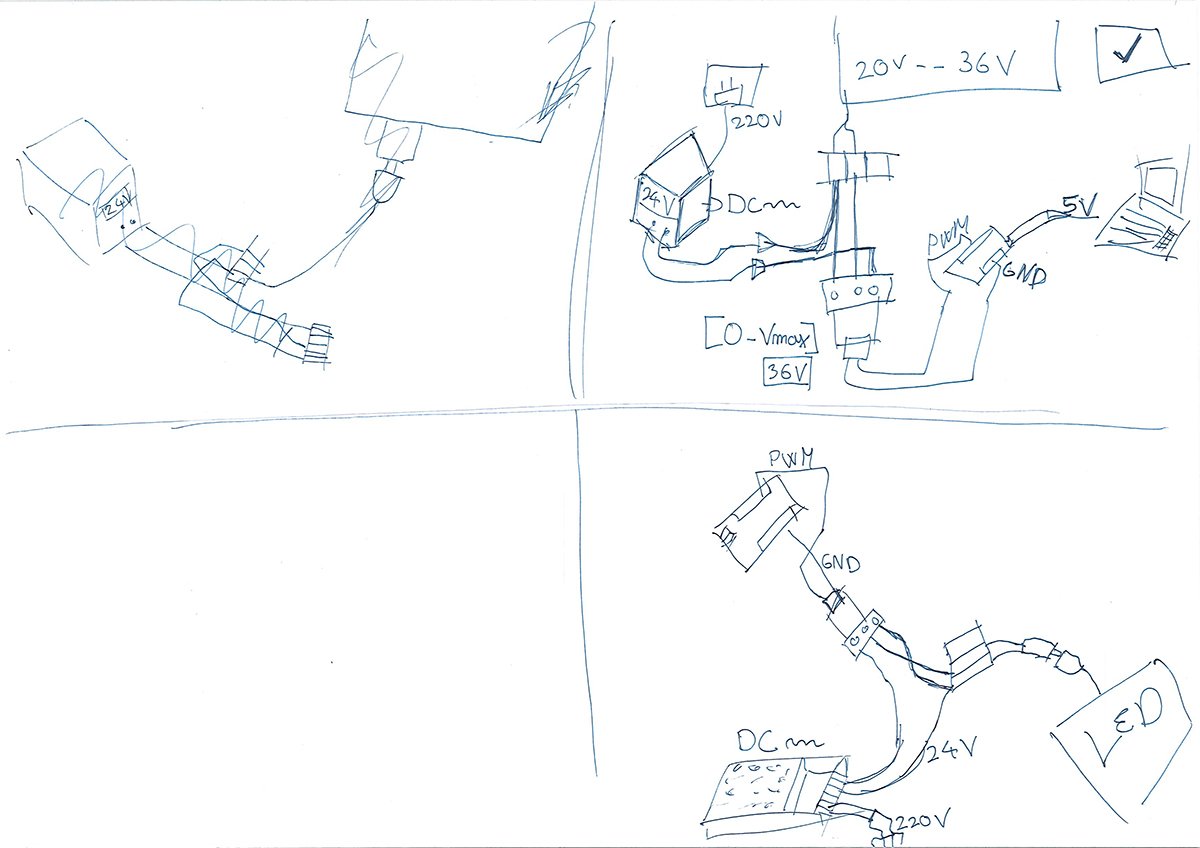 24V
20V -- 36V
220V
24V
DC
PWM
5V
GND
[0-Vmax]
36V
PWM
GND
LED
DC
24V
220V